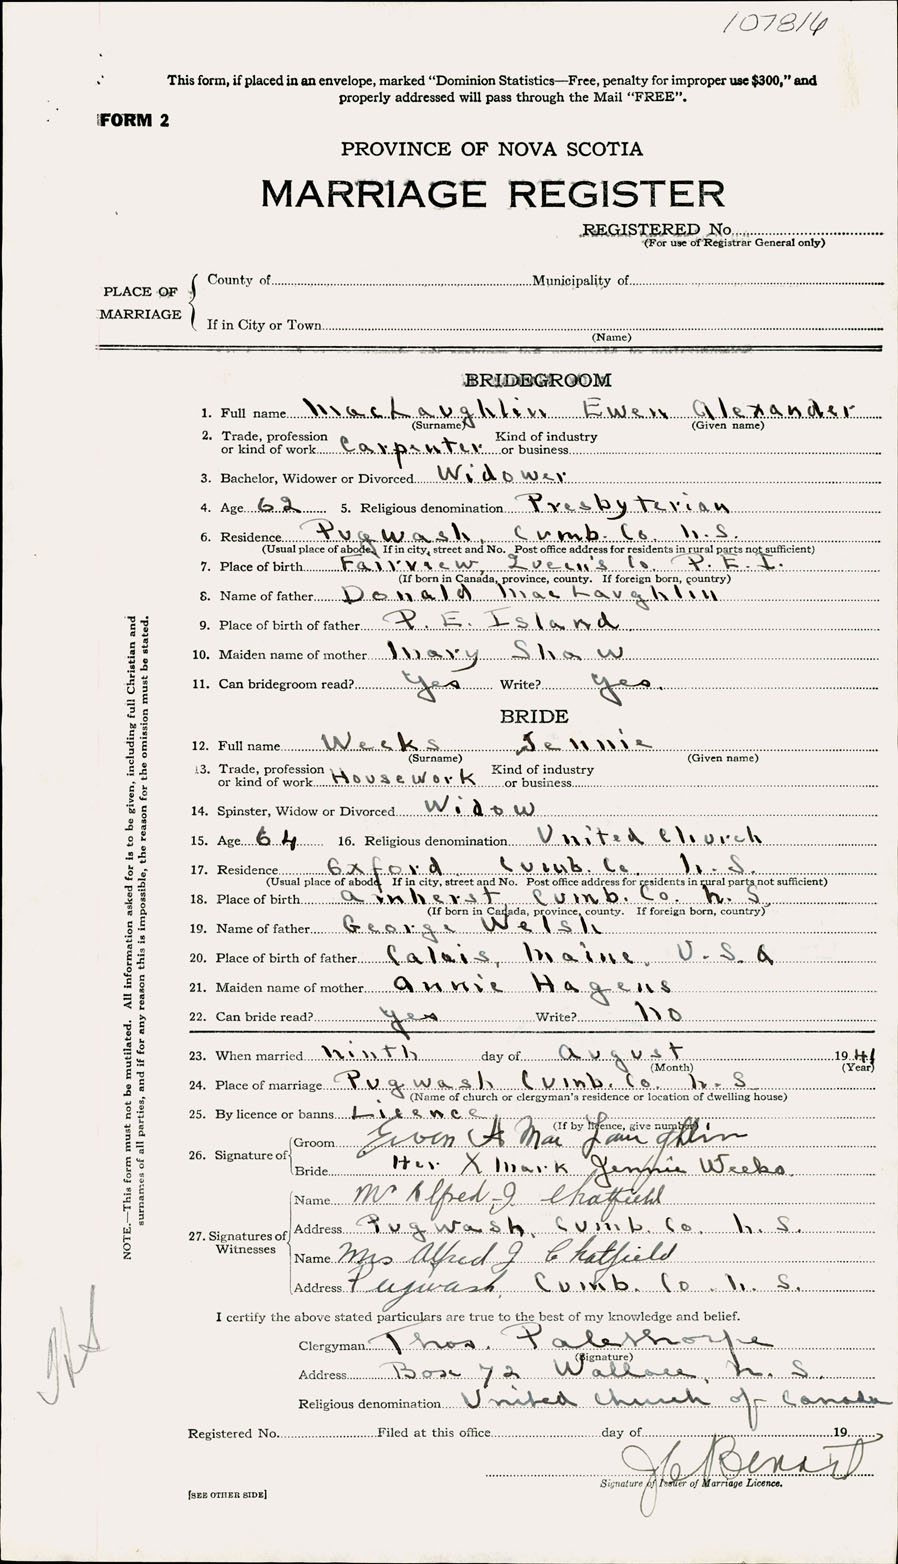 107816
This form, if placed in an envelope, marked “Dominion Statistics—Free, penalty for improper use $300,” and
properly addressed will pass through the Mail “FREE”.
FORM 2
PROVINCE OF NOVA SCOTIA
MARRIAGE REGISTER
REGISTERED No.
(For use of Registrar General only)
PLACE OF MARRIAGE
County of Municipality of
If in City or Town
(Name)
BRIDEGROOM
1. Full name MacLaughlin Ewen Alexander
(Surname) (Given name)
2. Trade, profession or kind of work Carpenter Kind of industry or business
3. Bachelor, Widower or Divorced Widower
4. Age 62 5. Religious denomination Presbyterian
6. Residence Pugwash, Cumb. Co. N.S.
(Usual place of abode. If in city, street and No. Post office address for residents in rural parts not sufficient)
7. Place of birth Fairview, Queen's Co. P.E.I.
(If born in Canada, province, county. If foreign born, country)
8. Name of father Donald MacLaughlin
9. Place of birth of father P. E. Island
10. Maiden name of mother Mary Shaw
11. Can bridegroom read? Yes Write? Yes.
BRIDE
12. Full name Weeks Jennie
(Surname) (Given name)
13. Trade, profession or kind of work Housework Kind of industry or business
14. Spinster, Widow or Divorced Widow
15. Age 64 16. Religious denomination United Church
17. Residence Oxford Cumb. Co. N.S.
(Usual place of abode. If in city, street and No. Post office address for residents in rural parts not sufficient)
18. Place of birth Amherst Cumb. Co. N.S
(If born in Canada, province, county. If foreign born, country)
19. Name of father George Welsh
20. Place of birth of father Calais, Maine, U.S.A
21. Maiden name of mother Annie Hagens
22. Can bride read? Yes Write? No
23. When married Ninth day of August 1941
(Month) (Year)
24. Place of marriage Pugwash Cumb. Co. N.S
(Name of church or clergyman's residence or location of dwelling house)
25. By licence or banns Licence
(If by licence, give number)
26. Signature of Groom Ewen A MacLaughlin
Bride Her X Mark Jennie Weeks
27. Signatures of Witnesses
Name Mr Alfred J. Chatfield
Address Pugwash, Cumb. Co. N.S.
Name Mrs Alfred J Chatfield
Address Pugwash, Cumb. Co. N.S.
I certify the above stated particulars are true to the best of my knowledge and belief.
Clergyman Thos. Palethorpe
(Signature)
Address Box 72 Wallace, N.S.
Religious denomination United Church of Canada
Registered No. Filed at this office day of 19
Signature of Issuer of Marriage Licence.
[SEE OTHER SIDE]
NOTE.—This form must not be mutilated. All information asked for is to be given, including full Christian and
surnames of all parties, and if for any reason this is impossible, the reason for the omission must be stated.